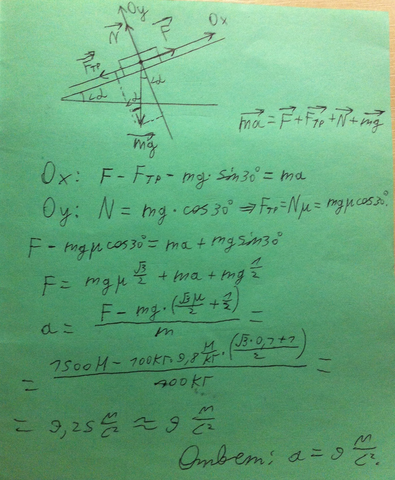 Oy
N⃗ F⃗ Ox
F⃗тр
∠α ∠α ∠α
mg⃗
ma⃗ = F⃗ + F⃗тр + N⃗ + mg⃗
Ox: F - Fтр - mg · sin30° = ma
Oy: N = mg · cos30° ⇒ Fтр = Nμ = mgμcos30°.
F - mgμcos30° = ma + mgsin30°
F = mgμ √3/2 + ma + mg 1/2
a = (F - mg · (√3μ/2 + 1/2))/m =
= (1500Н - 100кг · 9,8 м/кг · (√3·0,7+1)/2)/100кг =
= 9,25 м/с² ≈ 9 м/с²
Ответ: a = 9 м/с².